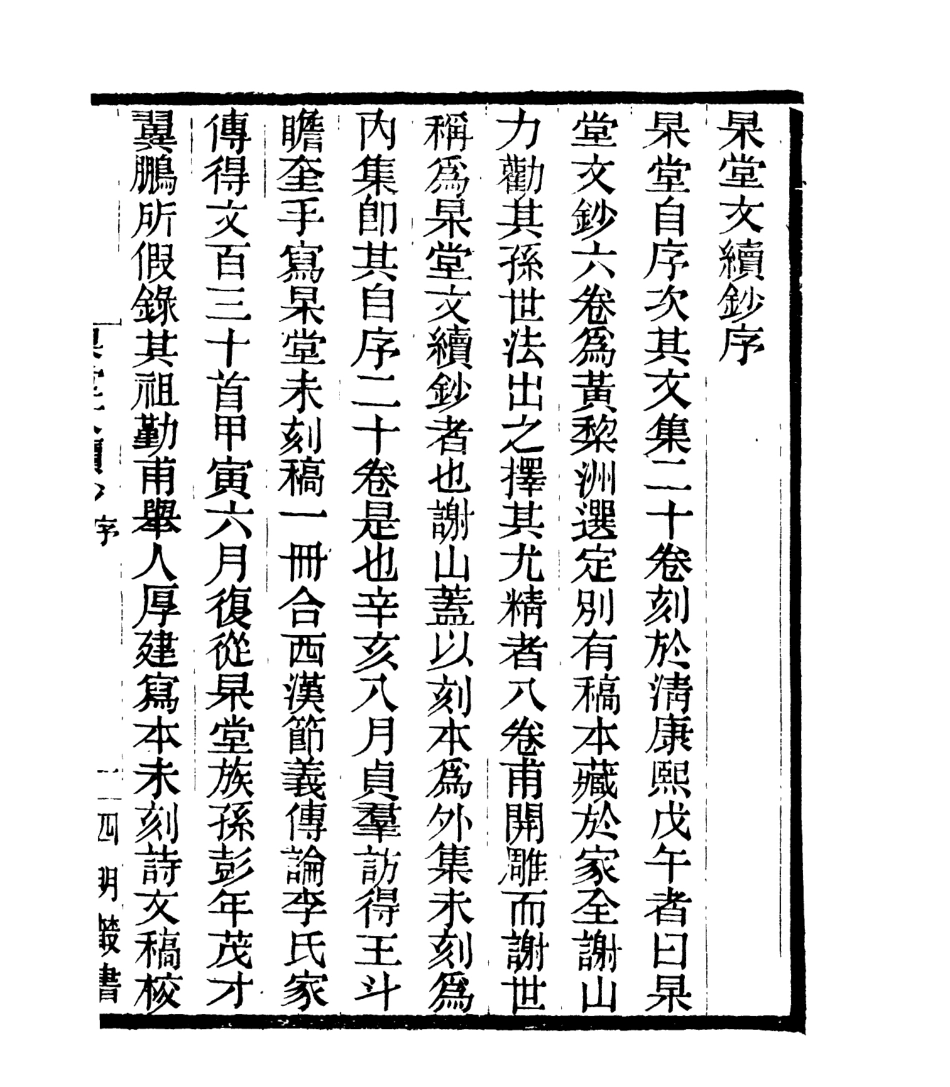 杲堂文續鈔序
杲堂自序次其文集二十卷刻於淸康熙戊午者曰杲
堂文鈔六卷爲黃棃洲選定別有稿本藏於家全謝山
力勸其孫世法出之擇其尤精者八卷甫開雕而謝世
稱爲杲堂文續鈔者也謝山蓋以刻本爲外集未刻爲
內集卽其自序二十卷是也辛亥八月貞羣訪得王斗
瞻奎手寫杲堂未刻稿一冊合西漢節義傳論李氏家
傳得文百三十首甲寅六月復從杲堂族孫彭年茂才
翼鵬所假錄其祖勤甫舉人厚建寫本未刻詩文稿校
序
一
四明叢書